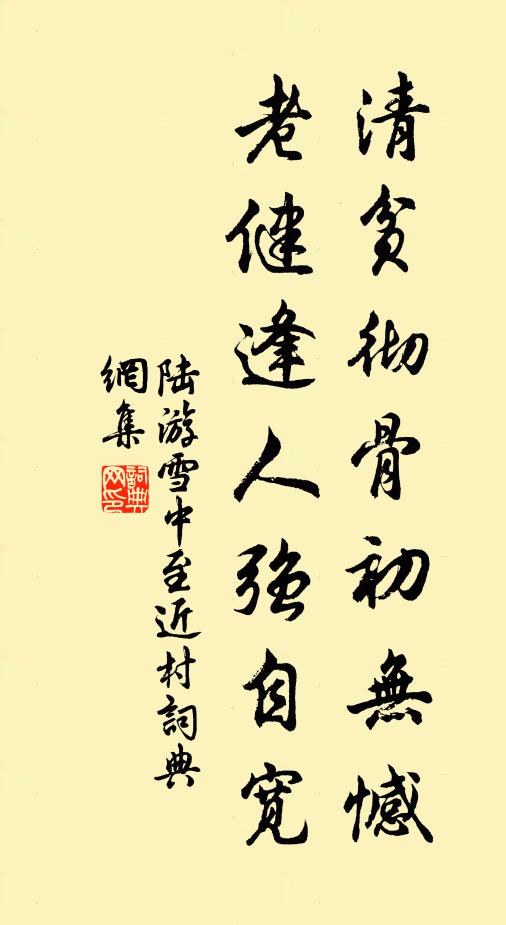 清貧彻骨初無憾
老健逢人強自寬
陆游雪中至近村詞典
網集
詞典
网印